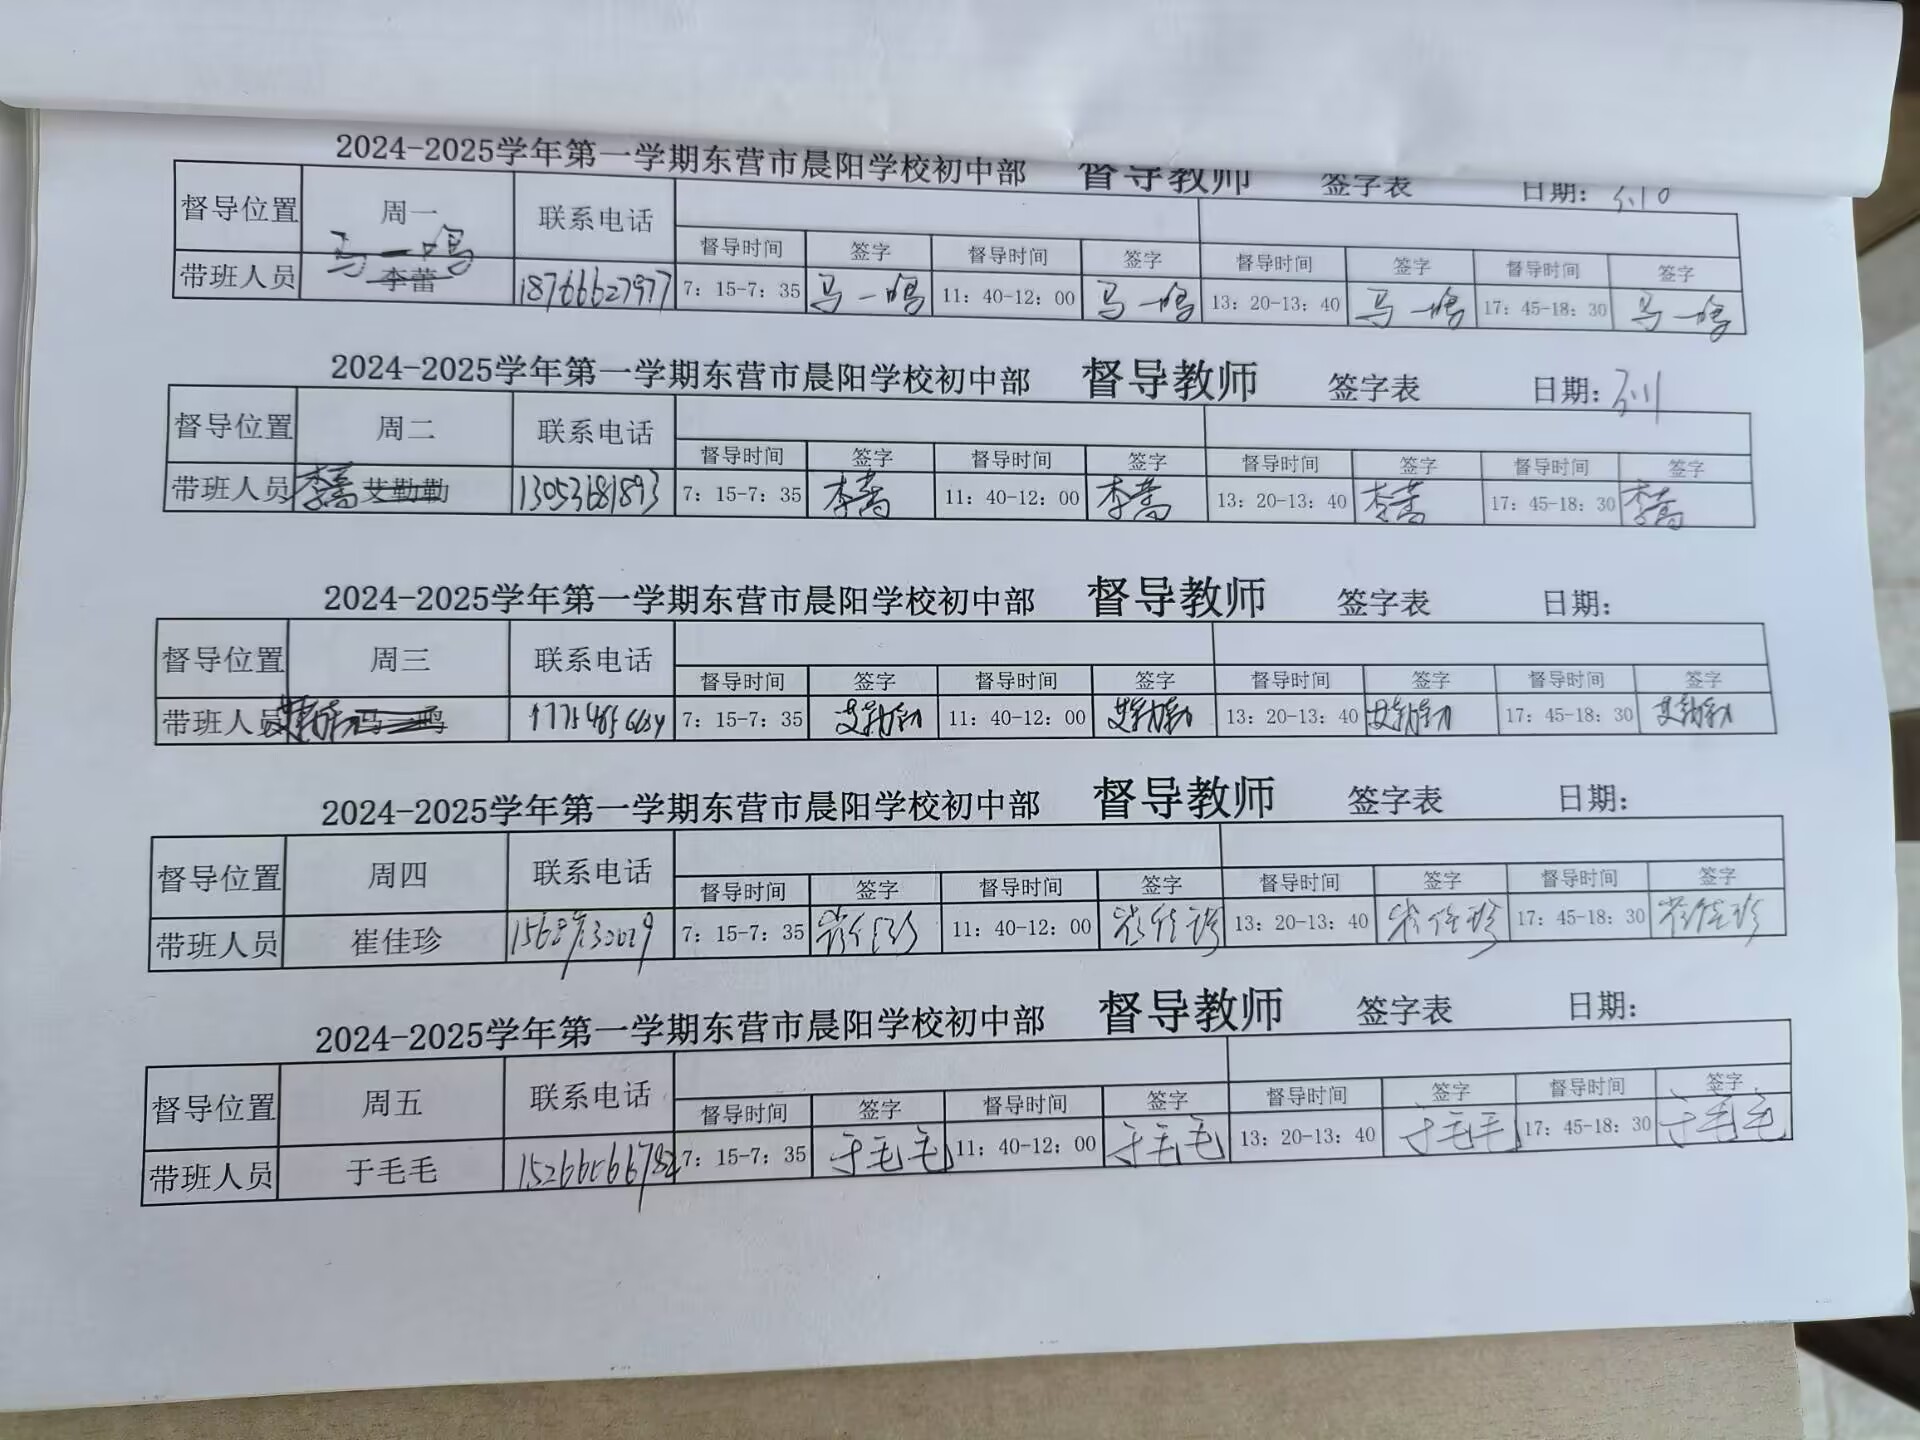 2024-2025学年第一学期东营市晨阳学校初中部 督导教师 签字表 日期: 3.10
督导位置 周一 联系电话
督导时间 签字 督导时间 签字 督导时间 签字 督导时间 签字
马一鸣
带班人员 李蕾 18766627977 7: 15-7: 35 马一鸣 11: 40-12: 00 马一鸣 13: 20-13: 40 马一鸣 17: 45-18: 30 马一鸣
2024-2025学年第一学期东营市晨阳学校初中部 督导教师 签字表 日期: 3.11
督导位置 周二 联系电话
督导时间 签字 督导时间 签字 督导时间 签字 督导时间 签字
带班人员 李蕾 艾勤勤 13053681893 7: 15-7: 35 李蕾 11: 40-12: 00 李蕾 13: 20-13: 40 李蕾 17: 45-18: 30 李蕾
2024-2025学年第一学期东营市晨阳学校初中部 督导教师 签字表 日期:
督导位置 周三 联系电话
督导时间 签字 督导时间 签字 督导时间 签字 督导时间 签字
带班人员 艾勤勤 马一鸣 7: 15-7: 35 艾勤勤 11: 40-12: 00 艾勤勤 13: 20-13: 40 艾勤勤 17: 45-18: 30 艾勤勤
2024-2025学年第一学期东营市晨阳学校初中部 督导教师 签字表 日期:
督导位置 周四 联系电话
督导时间 签字 督导时间 签字 督导时间 签字 督导时间 签字
带班人员 崔佳珍 7: 15-7: 35 崔佳珍 11: 40-12: 00 崔佳珍 13: 20-13: 40 崔佳珍 17: 45-18: 30 崔佳珍
2024-2025学年第一学期东营市晨阳学校初中部 督导教师 签字表 日期:
督导位置 周五 联系电话
督导时间 签字 督导时间 签字 督导时间 签字 督导时间 签字
带班人员 于毛毛 7: 15-7: 35 于毛毛 11: 40-12: 00 于毛毛 13: 20-13: 40 于毛毛 17: 45-18: 30 于毛毛